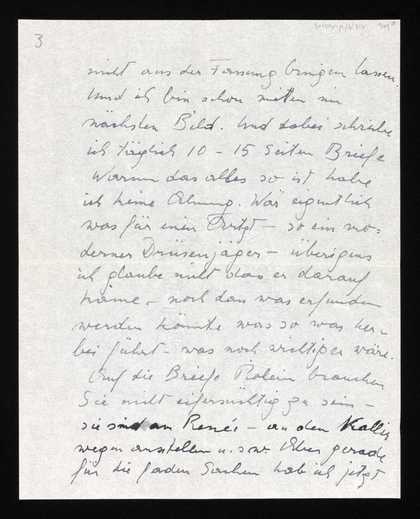 3
nicht aus der Fassung bringen lassen.
Und ich bin schon mitten im
nächsten Bild. Und dabei schreibe
ich täglich 10 - 15 Seiten Briefe
Warum das alles so ist habe
ich keine Ahnung. Wär eigentlich
was für einen Arzt - so ein mo-
derner Drüsenjäger - übrigens
ich glaube nicht dass er darauf
käme - noch dass was erfunden
werden könnte was so was her-
bei führt - was noch wichtiger wäre.
Auf die Briefe brauchen
Sie nicht eifersüchtig zu sein -
sie sind an Renée - an den
wegen anstellen u.s.w. Aber gerade
für die faden Sachen hab ich jetzt